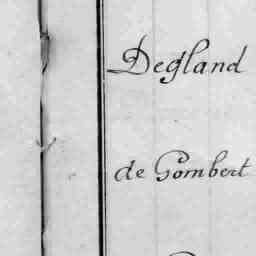 Degland
de Gombert